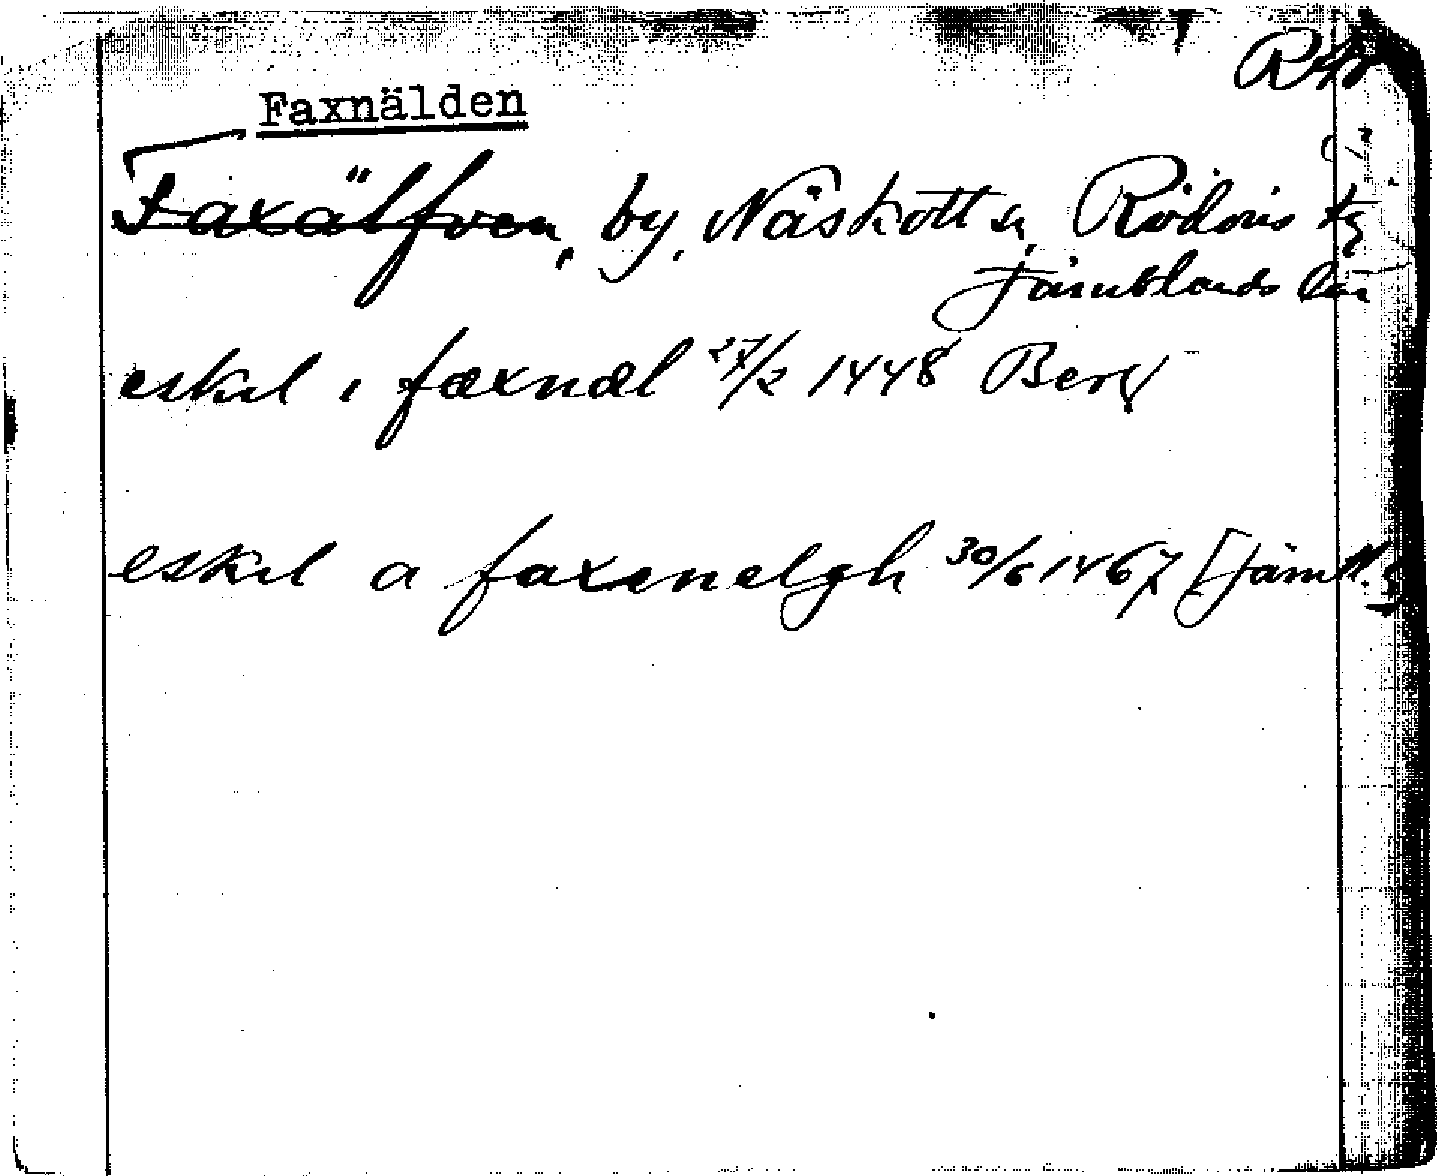 Faxnälden
Faxälfven, by, Näskott sn, Rödöns tg
Jämtlands län
eskil i fæxnæl 27/2 1448 Berg
eskil a faxenelgh 30/6 1467 [Jämtl.